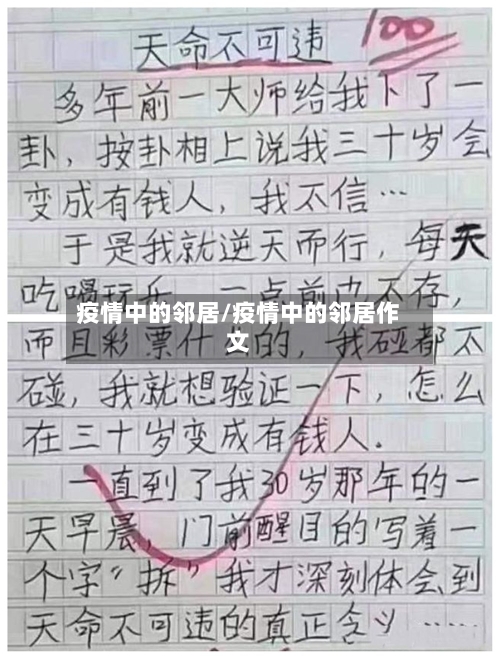 天命不可违 100
多年前一大师给我卜了一
卦，按卦相上说我三十岁会
变成有钱人，我不信…
于是我就逆天而行，每天
吃喝玩乐，一点前也不存，
疫情中的邻居/疫情中的邻居作
文
而且彩票什么的，我碰都不
碰，我就想验证一下，怎么
在三十岁变成有钱人.
一直到了我30岁那年的一
天早晨，门前醒目的写着一
个字"拆"我才深刻体会到
天命不可违的真正含义……